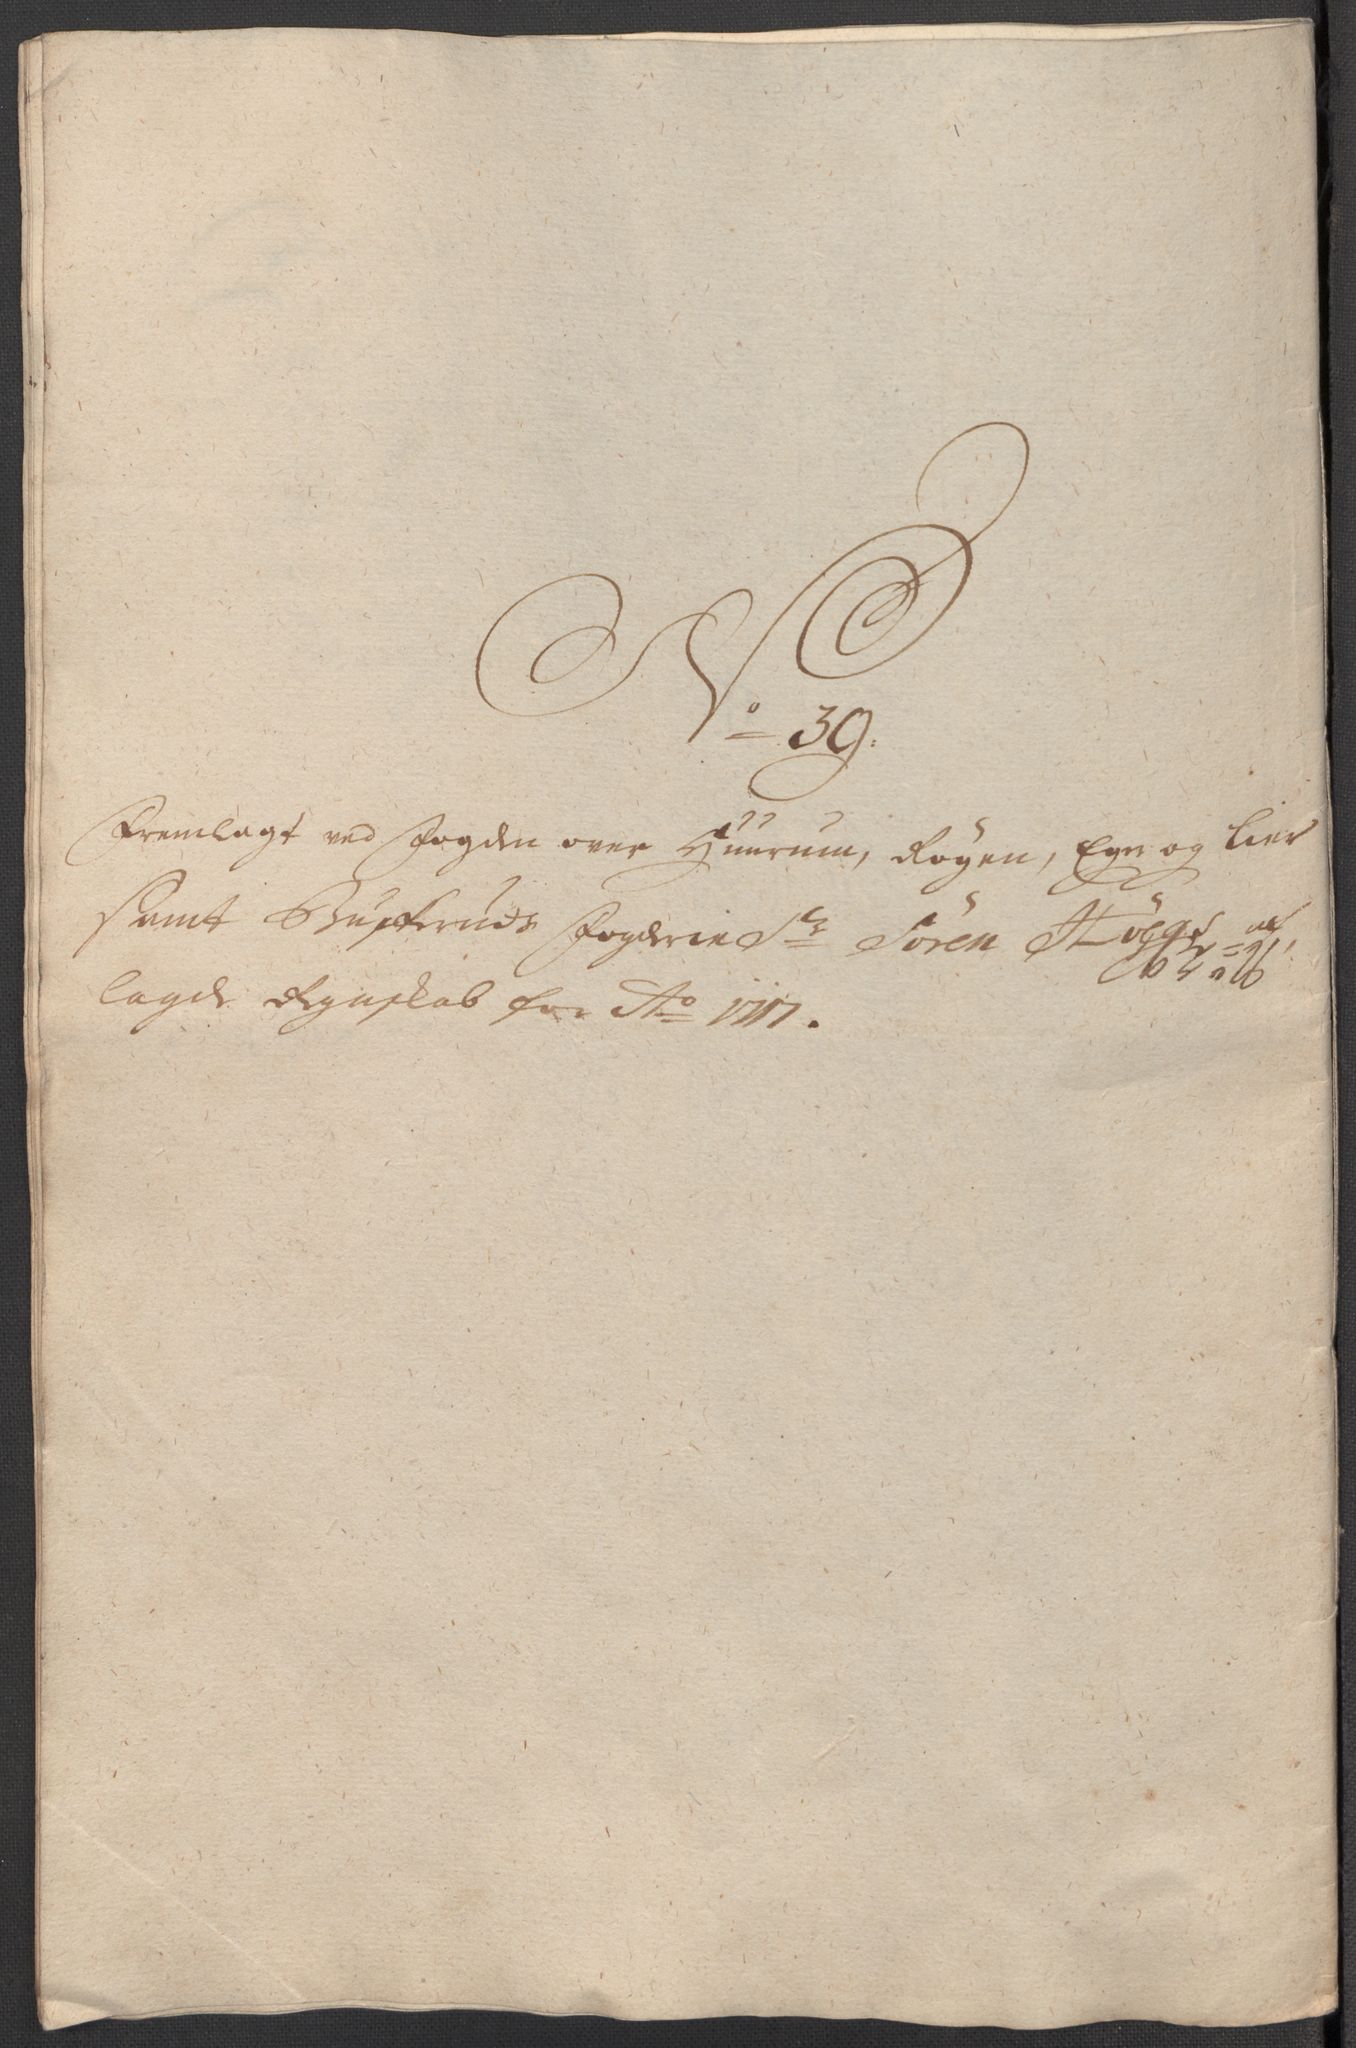 No 39.
Fremlagt ved Fogden over Huurum, Röyen, Egr og Lier
samt Buskeruds Fogderie Sr Sören af
lagde Regnskab for Ao 1717.